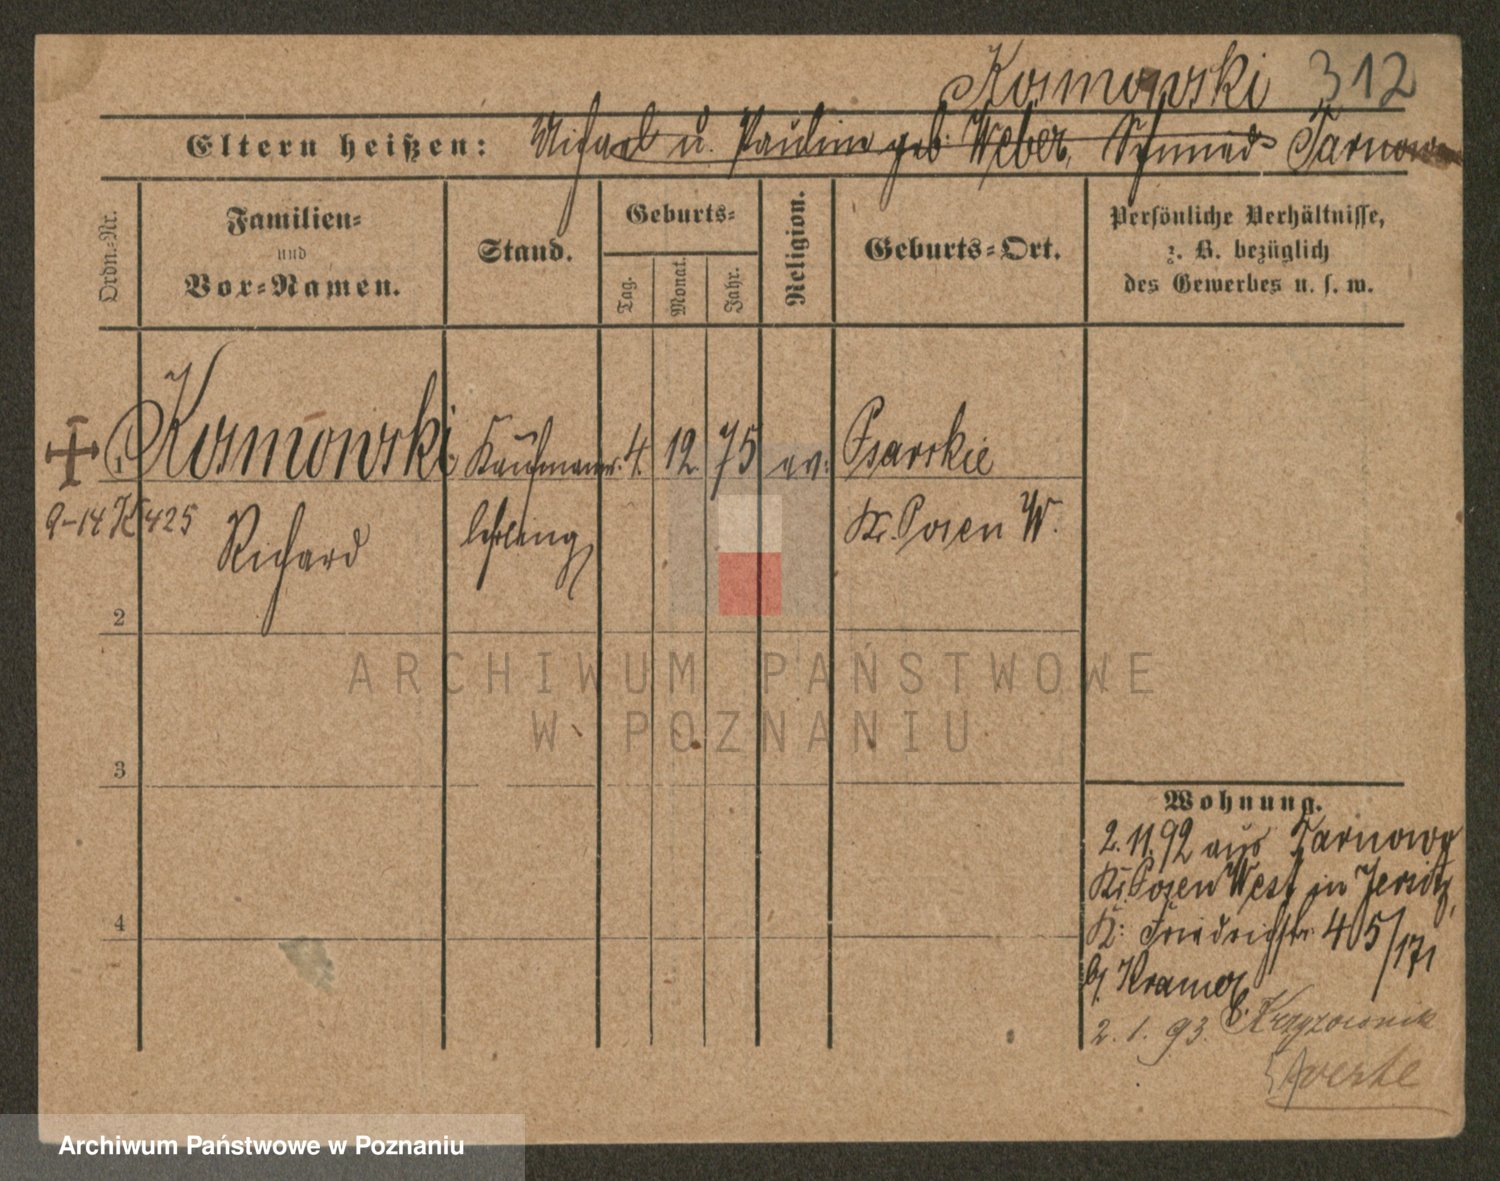 Kosmowski 312
Eltern heißen: Michael u. Pauline geb. Weber, Schmied Tarnowo
Ordn.-Nr.
Familien-
und
Vor-Namen.
Stand.
Geburts-
Tag. Monat. Jahr.
Religion.
Geburts-Ort.
Persönliche Verhältnisse,
z. B. bezüglich
des Gewerbes u. s. w.
1 Kosmowski Kaufmanns- 4. 12. 75 ev: Psarskie
9-14 K 425
Richard lehrling Kr. Posen W.
2
3
4
Wohnung.
2.11.92 aus Tarnowo
Kr. Posen West in Jersitz,
K: Friedrichstr. 405/171
b/ Kramer
2.1.93.
ARCHIWUM PAŃSTWOWE
W POZNANIU
Archiwum Państwowe w Poznaniu